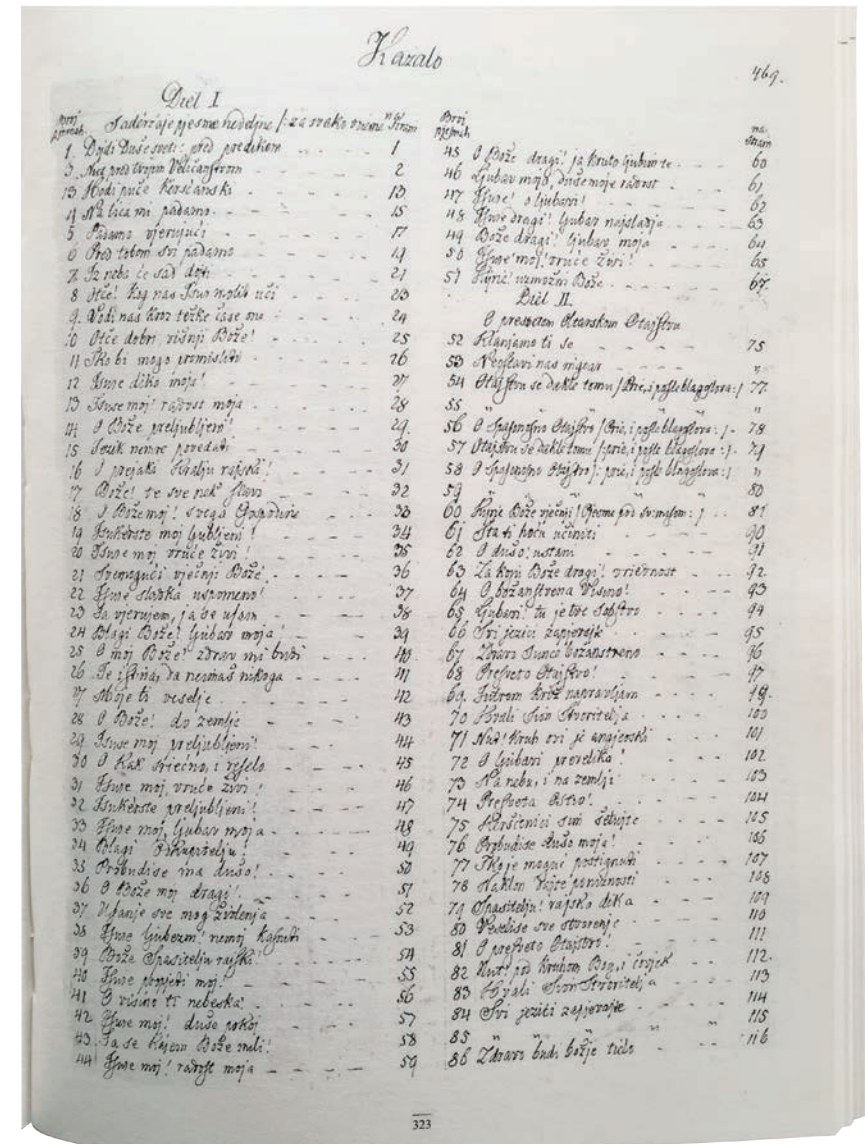 Kazalo
469.
Diel I
Broj pjesmah. Sadéržaje pjesme nedeljne /: za svako vreme Stran
1. Dojdi Duše sveti: pred predikom 1
3. Nuz pred tvojim Veličanstvom 2
13 Hodi puče kerščanski 13
4 Na lica mi padamo 15
5 Padamo vjerujući 17
6 Pred tobom svi padamo 19
7. Iz neba će sad dojti 21
8 Otče! kog nas Isus molit uči 23
9. Vodi nas kroz težke čase 24
10 Otče dobri, višnji Bože! 25
11 Tko bi mogo promisliti 26
12 Isuse diko moja! 27
13 Isuse moj! radost moja 28
14 O Bože preljubljeni! 29.
15 Jezik nemre povedati 30
16 O prejaki Kralju rajski! 31
17 Bože! te sve nek' slavi 32
18 O Bože moj! svega Gospodine 33
19 Isukerste moj ljubljeni! 34
20 Isuse moj vruće živi! 35
21 Svemogući vječnji Bože! 36
22 Isuse slatka uspomeno! 37
23 Ja vjerujem, ja se ufam 38
24 Blagi Bože! ljubav moja! 39
25 O moj Bože! zdrav mi budi 40
26 Je istina, da neimaš nikoga 41
27 Moje ti veselje 42
28 O Bože! do zemlje 43
29. Isuse moj preljubljeni! 44
30 O kak sriećno, i veselo 45
31 Isuse moj, vruće živi! 46
32 Isukerste preljubljeni! 47
33 Isuse moj, ljubav moja 48
34 Blagi Otkupitelju! 49
35 Probudise ma dušo! 50
36 O Bože moj dragi! 51
37 Ufanje sve mog življenja 52
38 Isuse ljubezni! nemoj kasniti 53
39 Bože Spasitelju rajski! 54
40 Isuse propeti moj! 55
41 O visino ti nebeska! 56
42 Isuse moj! dušo pokoj 57
43. Ja se kajem Bože mili! 58
44 Isuse moj! radost moja 59
Broj pjesmah na stran
45 O Bože dragi! ja kruto ljubim te 60
46 Ljubav moja, duše moje radost 61
47 Isuse! o ljubavi! 62
48 Isuse dragi! ljubav najsladja 63
49 Bože dragi! ljubav moja 64
50 Isuse moj! vruće živi! 65
51 Kyrie! uzmožni Bože 67.
Diel II.
O presvetom Oltarskom Otajstvu
52 Klanjamo ti se 75
53 Neostavi nas nigdar "
54 Otajstvu se dakle tomu / Prie, i posle blagoslova :/ 77.
55 " " "
56 O Spasonosno Otajstvo / Prie, i posle blagoslova :/ 78
57 Otajstvu se dakle tomu /: prie, i posle blagoslova :/ 79
58 O Spasonosno Otajstvo /: prie, i posle blagoslova :/ "
59 " " 80
60 Kyrie Bože vječnji / Pjesma pod sv: misom :/ 81
61 Šta ti hoću učiniti 90
62 O dušo! ustani 91
63 Za koju Bože dragi! vriednost 92.
64 O božanstvena Visino! 93
65 Ljubavi! tu je tve Sobstvo 94
66 Svi jezici zapjevajte 95
67 Zdravo Sunce božanstveno 96
68 Presveto Otajstvo! 97
69. Jutrom križ napravljam
70 Hvali Sion Stvoritelja 100
71 Nut! Kruh ovi je angjeoski 101
72 O ljubavi prevelika! 102
73 Na nebu, i na zemlji 103
74 Presveta Oštio! 104
75 Kerščenici sim šetujte 105
76 Probudise dušo moja! 106
77 Tko je moguć postignuti 107
78 Naklon dajte poniznosti 108
79 Spasitelju! rajsko dika 109
80 Veselise sve stvorenje 110
81 O presveto Otajstvo! 111
82 Nut! pod kruhom Bog, i čovjek 112.
83 Hvali Sion Stvoritelja 113
84 Svi jezici zapjevajte 114
85 " " " 115
86 Zdravo budi božje tielo 116
323